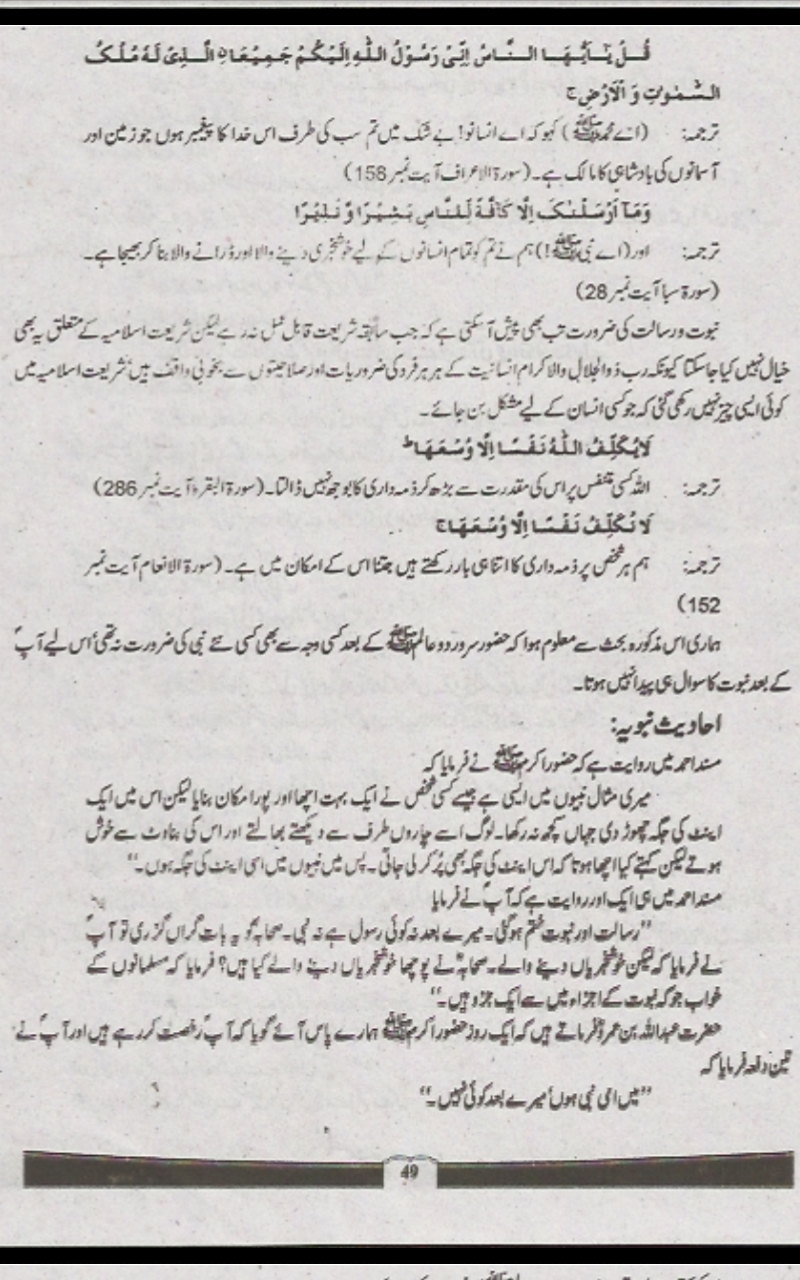 قُلْ یٰۤاَیُّهَا النَّاسُ اِنِّیْ رَسُوْلُ اللّٰهِ اِلَیْكُمْ جَمِیْعَا ِ۟الَّذِیْ لَهٗ مُلْكُ
السَّمٰوٰتِ وَ الْاَرْضِ ج
ترجمہ: (اے محمدﷺ) کہو کہ اے انسانو! بے شک میں تم سب کی طرف اس خدا کا پیغمبر ہوں جو زمین اور
آسمانوں کی بادشاہی کا مالک ہے۔ (سورۃ الاعراف آیت نمبر 158)
وَمَاۤ اَرْسَلْنٰكَ اِلَّا كَآفَّةً لِّلنَّاسِ بَشِیْرًا وَّ نَذِیْرًا
ترجمہ: اور (اے نبیﷺ!) ہم نے تم کو تمام انسانوں کے لیے خوشخبری دینے والا اور ڈرانے والا بنا کر بھیجا ہے۔
(سورۃ سبا آیت نمبر 28)
نبوت و رسالت کی ضرورت تب بھی پیش آ سکتی ہے کہ جب سابقہ شریعت قابل عمل نہ رہے لیکن شریعت اسلامیہ کے متعلق یہ بھی
خیال نہیں کیا جا سکتا کیونکہ رب ذوالجلال والاکرام انسانیت کے ہر ہر فرد کی ضروریات اور صلاحیتوں سے بخوبی واقف ہیں، شریعت اسلامیہ میں
کوئی ایسی چیز نہیں رکھی گئی کہ جو کسی انسان کے لیے مشکل بن جائے۔
لَا یُكَلِّفُ اللّٰهُ نَفْسًا اِلَّا وُسْعَهَا ؕ
ترجمہ: اللہ کسی متنفس پر اس کی مقدرت سے بڑھ کر ذمہ داری کا بوجھ نہیں ڈالتا۔ (سورۃ البقرہ آیت نمبر 286)
لَا نُكَلِّفُ نَفْسًا اِلَّا وُسْعَهَا ج
ترجمہ: ہم ہر شخص پر ذمہ داری کا اتنا ہی بار رکھتے ہیں جتنا اس کے امکان میں ہے۔ (سورۃ الانعام آیت نمبر
152)
ہماری اس مذکورہ بحث سے معلوم ہوا کہ حضور سرور دو عالمﷺ کے بعد کسی وجہ سے بھی کسی نئے نبی کی ضرورت نہ تھی، اس لیے آپؐ
کے بعد نبوت کا سوال ہی پیدا نہیں ہوتا۔
احادیث نبویہ:
مسند احمد میں روایت ہے کہ حضور اکرمﷺ نے فرمایا کہ
میری مثال نبیوں میں ایسی ہے جیسے کسی شخص نے ایک بہت اچھا اور پورا مکان بنایا لیکن اس میں ایک
اینٹ کی جگہ چھوڑ دی جہاں کچھ نہ رکھا۔ لوگ اسے چاروں طرف سے دیکھتے بھالتے اور اس کی بناوٹ سے خوش
ہوتے لیکن کہتے کیا اچھا ہوتا کہ اس اینٹ کی جگہ بھی پُر کر لی جاتی۔ پس میں نبیوں میں اسی اینٹ کی جگہ ہوں۔“
مسند احمد میں ہی ایک اور روایت ہے کہ آپؐ نے فرمایا
”رسالت اور نبوت ختم ہو گئی۔ میرے بعد نہ کوئی رسول ہے نہ نبی۔ صحابہؓ کو یہ بات گراں گزری تو آپؐ
نے فرمایا کہ لیکن خوشخبریاں دینے والے۔ صحابہؓ نے پوچھا خوشخبریاں دینے والے کیا ہیں؟ فرمایا کہ مسلمانوں کے
خواب جو کہ نبوت کے اجزاء میں سے ایک جزو ہیں۔“
حضرت عبداللہ بن عمروؓ فرماتے ہیں کہ ایک روز حضور اکرمﷺ ہمارے پاس آئے گویا کہ آپؐ رخصت کر رہے ہیں اور آپؐ نے
تین دفعہ فرمایا کہ
”میں امی نبی ہوں، میرے بعد کوئی نہیں۔“
49